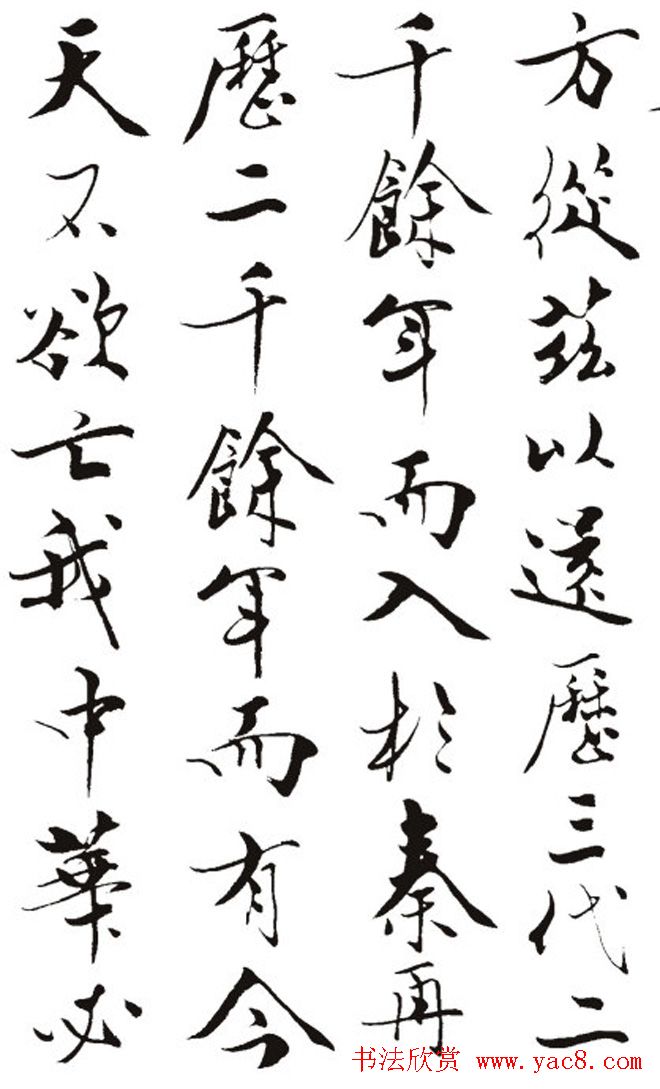 方從茲以還歷三代二
千餘年而入於秦再
歷二千餘年而有今
天不欲亡我中華必
书法欣赏 www.yac8.com